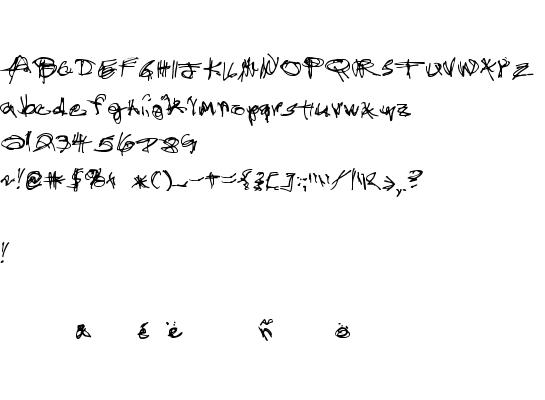 ABCDEFGHIJKLMNOPQRSTUVWXYZ
abcdefghijklmnopqrstuvwxyz
0123456789
~!@#$%^ *()_-+={}[]:;"'/\|<>,.?
!
é ë ñ ö